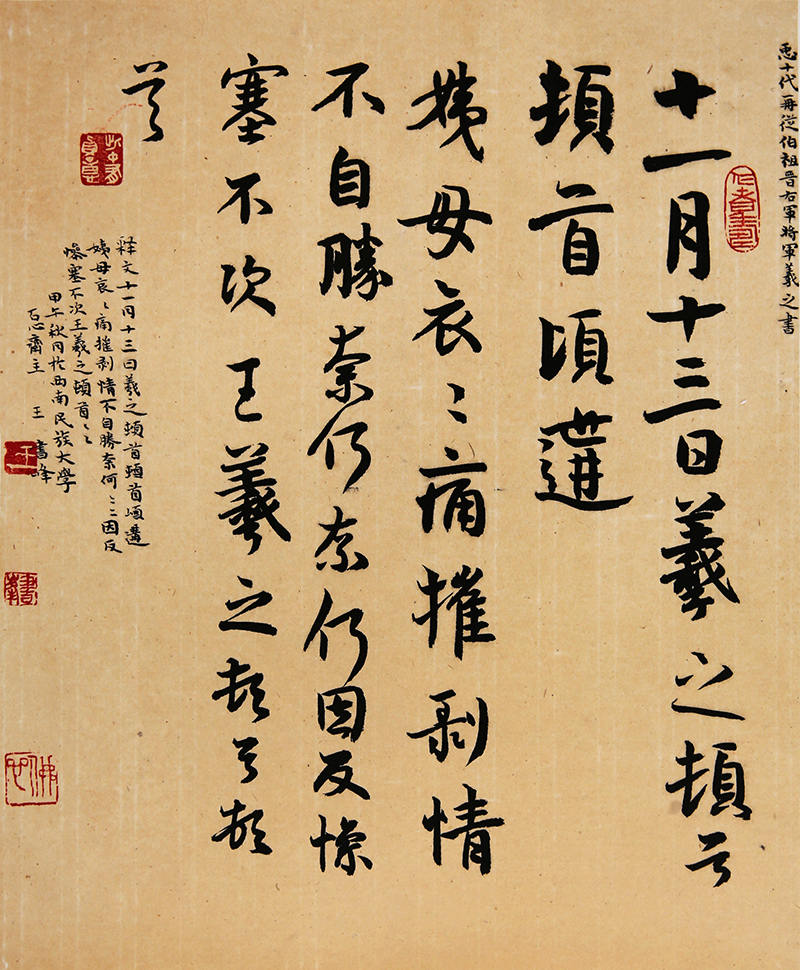 𢘑十代再從伯祖晋右軍將軍羲之書
十一月十三日羲之頓首
頓首頃遘
姨母哀〻痛摧剥情
不自勝奈何奈何因反惨
塞不次王羲之頓首頓
首
释文十一月十三日羲之頓首頓首頃遘
姨母哀〻痛摧剥情不自勝奈何〻〻因反
惨塞不次王羲之頓首〻〻
甲午秋月於西南民族大學
百心齋主 王書峰